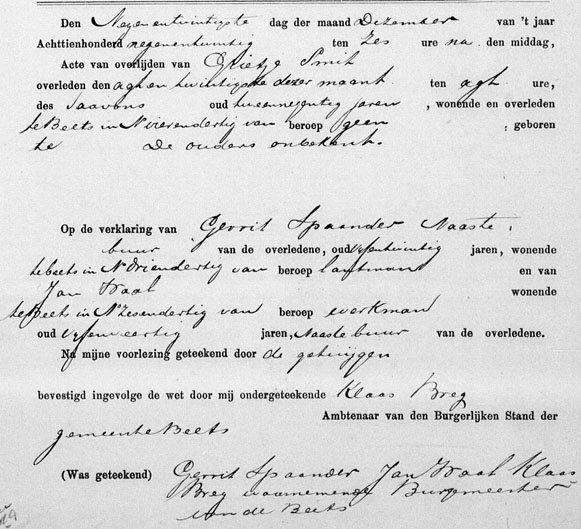 Den Negenentwintigste dag der maand Dezember van 't jaar
Achttienhonderd negenentwintig ten zes ure na den middag,
Acte van overlijden van Grietje Smit
overleden den agh en twichtigste dezer maant ten agt ure,
des Saavons oud tweennegentig jaren, wonende en overleden
te Beets in N vierendertig van beroep geen ; geboren
te De ouders onbekent.
Op de verklaring van Gerrit Spaander Naaste
buur van de overledene, oud vyfentwintig jaren, wonende
te beets in N Driendertig van beroep lantman en van
Jan Waal wonende
te Beets in N Zesendertig van beroep werkman
oud vyfenveertig jaren, Naaste buur van de overledene.
Na mijne voorlezing geteekend door de getuijgen
bevestigd ingevolge de wet door mij ondergeteekende Klaas Breg
Ambtenaar van den Burgerlijken Stand der
gemeente Beets
(Was geteekend) Gerrit Spaander Jan Waal Klaas
Breg waarnemende Burgemeester
van de Beets